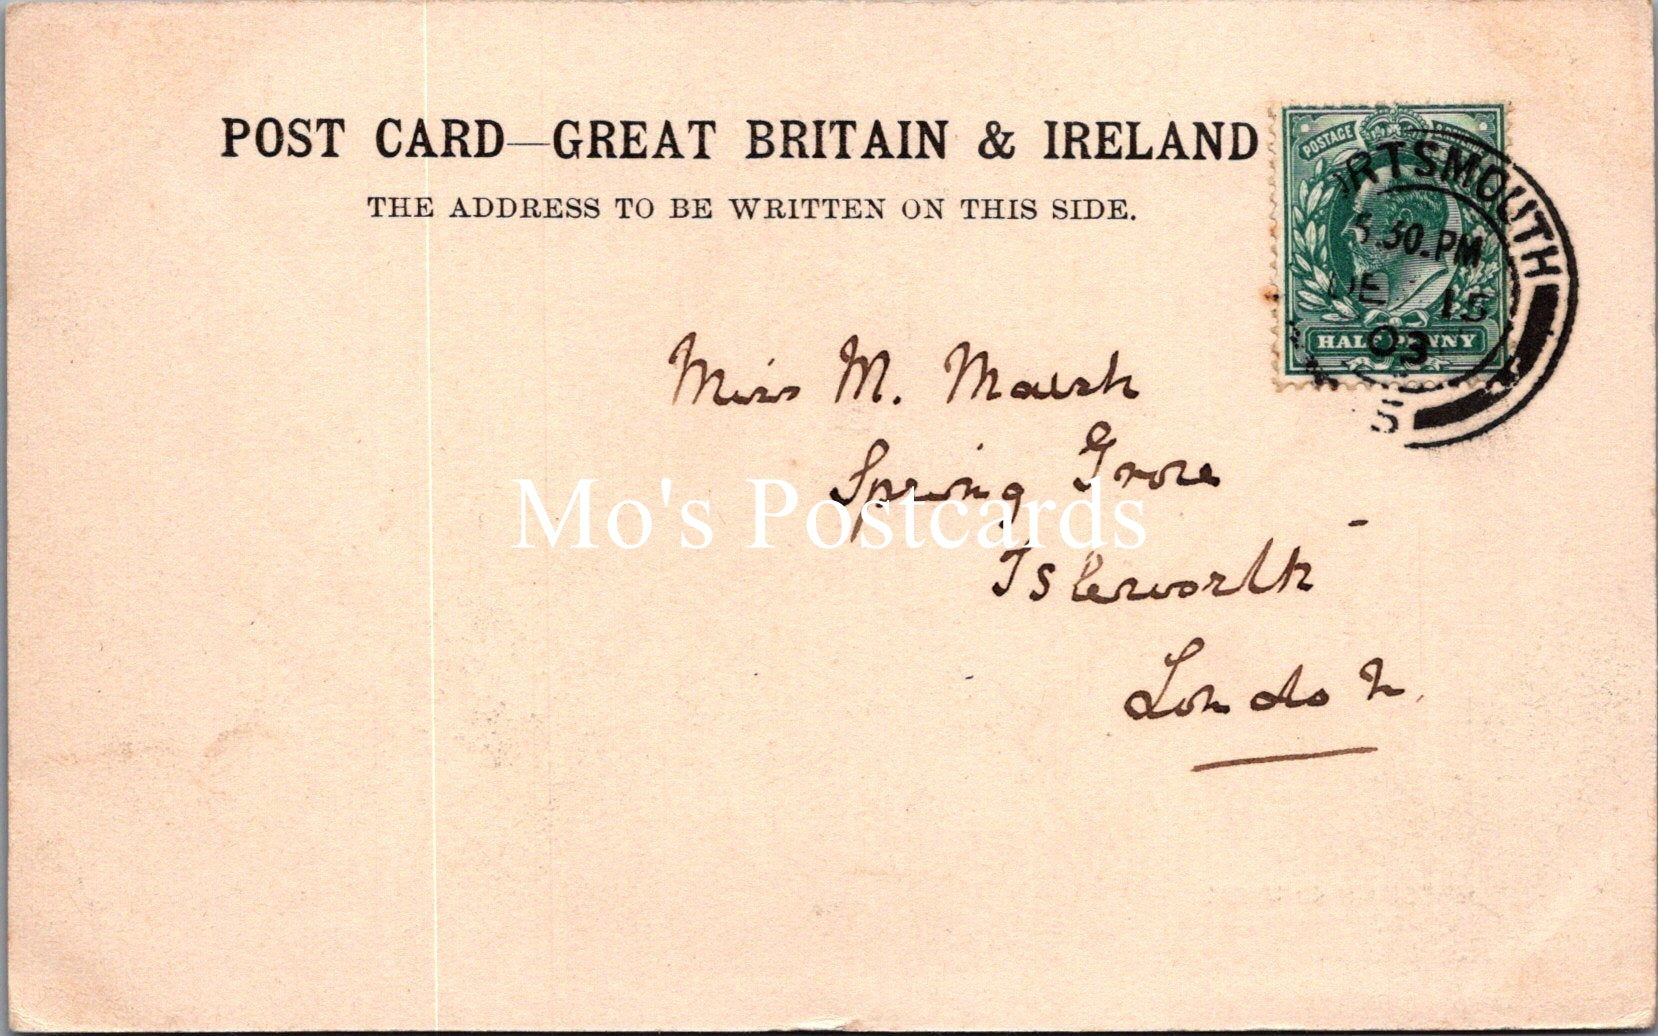 POST CARD—GREAT BRITAIN & IRELAND
THE ADDRESS TO BE WRITTEN ON THIS SIDE.
POSTAGE REVENUE
HALFPENNY
PORTSMOUTH
5.30.PM
DE 15
03
S
Miss M. Marsh
Spring Grove
Isleworth
London
Mo's Postcards